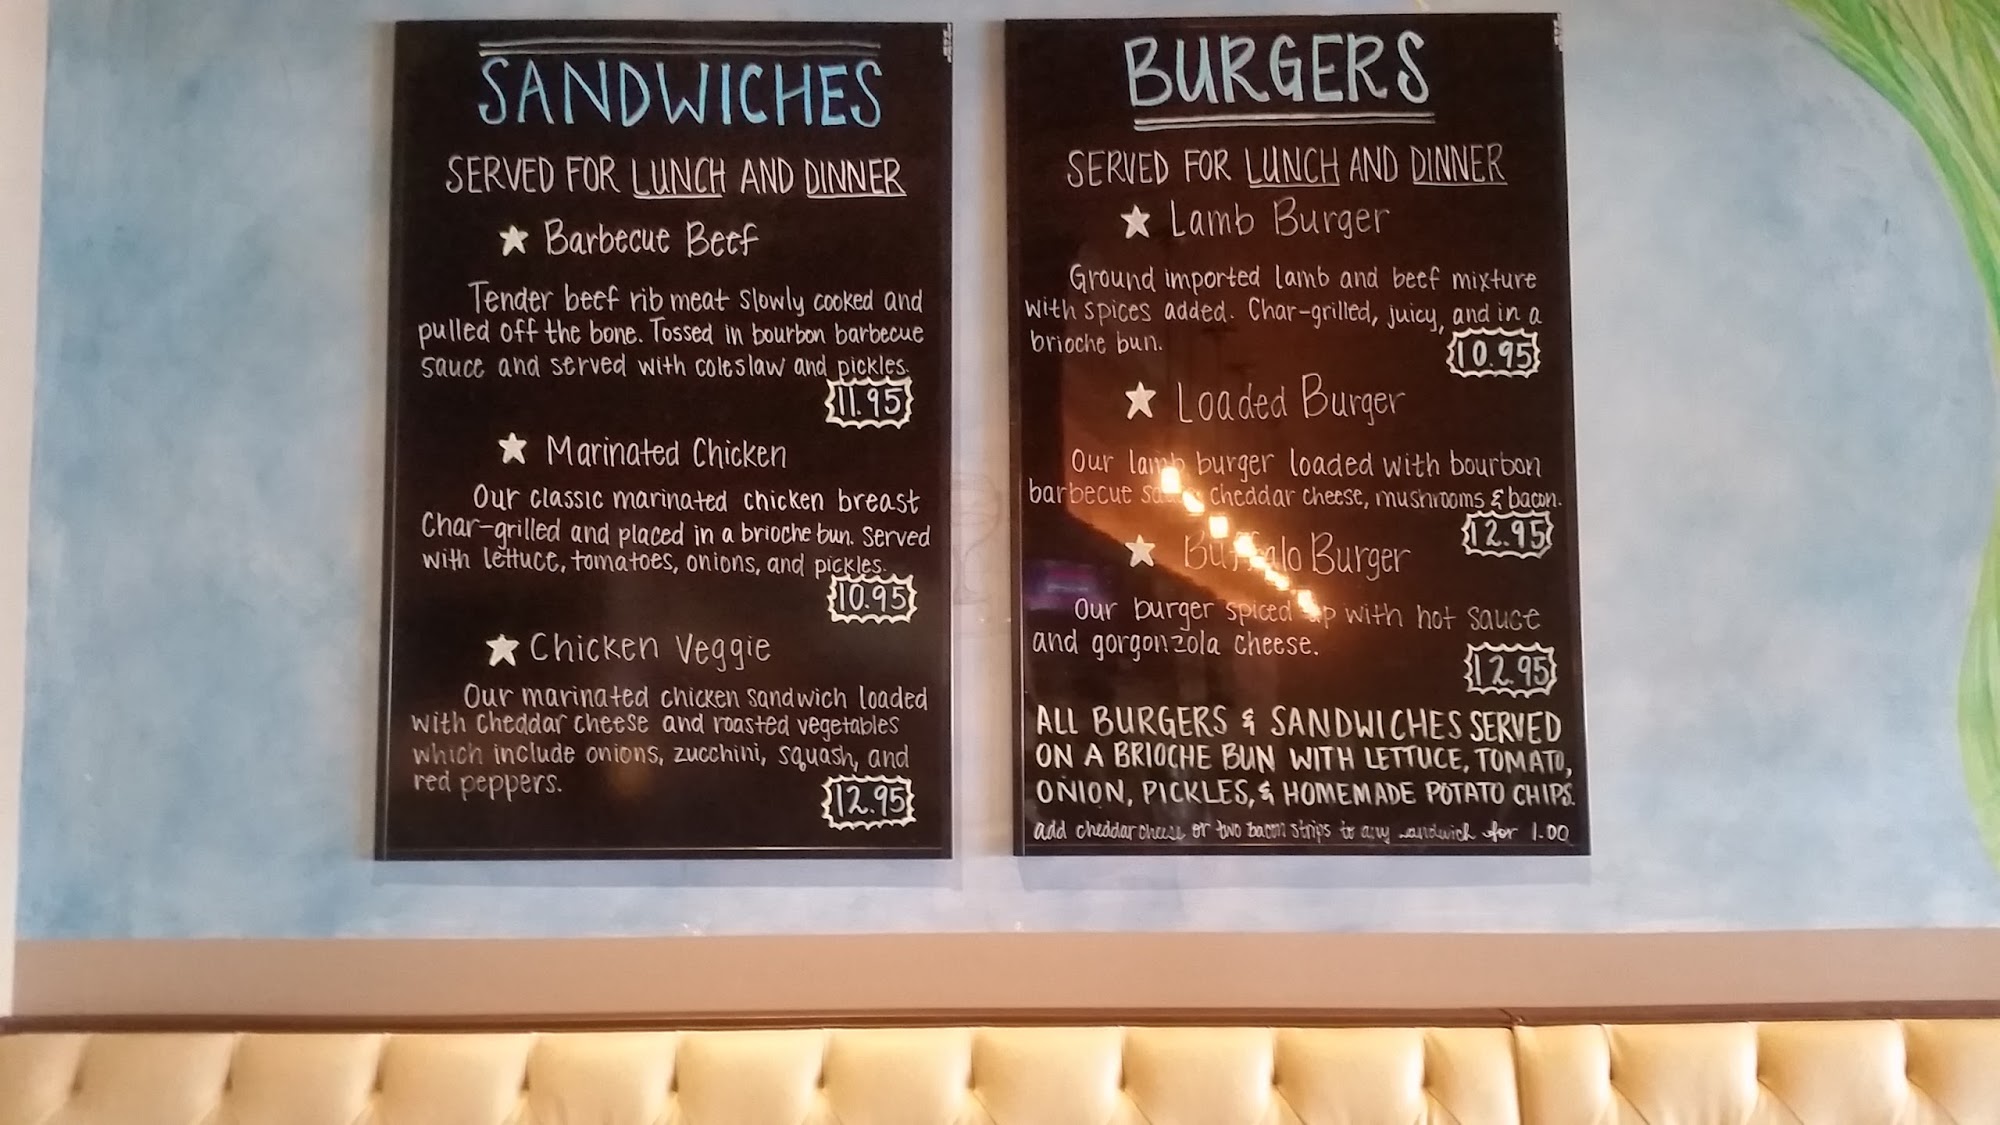 SANDWICHES
SERVED FOR LUNCH AND DINNER
Barbecue Beef
Tender beef rib meat slowly cooked and
pulled off the bone. Tossed in bourbon barbecue
sauce and served with coleslaw and pickles.
11.95
Marinated Chicken
Our classic marinated chicken breast
Char-grilled and placed in a brioche bun. Served
with lettuce, tomatoes, onions, and pickles.
10.95
Chicken Veggie
Our marinated chicken sandwich loaded
with cheddar cheese and roasted vegetables
which include onions, zucchini, squash, and
red peppers.
12.95
BURGERS
SERVED FOR LUNCH AND DINNER
Lamb Burger
Ground imported lamb and beef mixture
with spices added. Char-grilled, juicy, and in a
brioche bun.
10.95
Loaded Burger
Our lamb burger loaded with bourbon
barbecue sauce, cheddar cheese, mushrooms & bacon.
12.95
Buffalo Burger
Our burger spiced up with hot sauce
and gorgonzola cheese.
12.95
ALL BURGERS & SANDWICHES SERVED
ON A BRIOCHE BUN WITH LETTUCE, TOMATO,
ONION, PICKLES, & HOMEMADE POTATO CHIPS.
add cheddar cheese or two bacon strips to any sandwich for 1.00